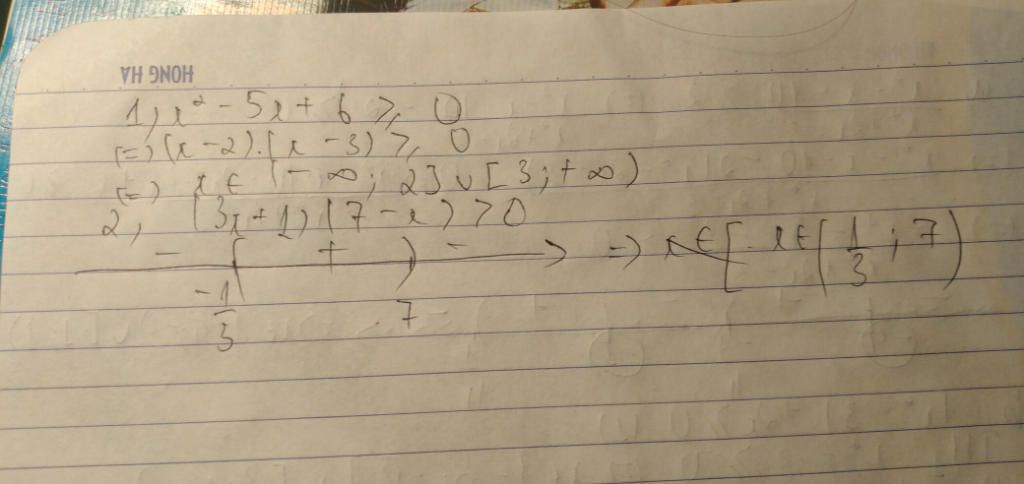 HONG HA
1, x² - 5x + 6 ≥ 0
(=) (x - 2).(x - 3) ≥ 0
(=) x ∈ (-∞; 2] ∪ [3; +∞)
2, (3x+1)(7-x) > 0
- ( + ) - => x ∈ [ x ∈ (1/3; 7)
-1/3 7